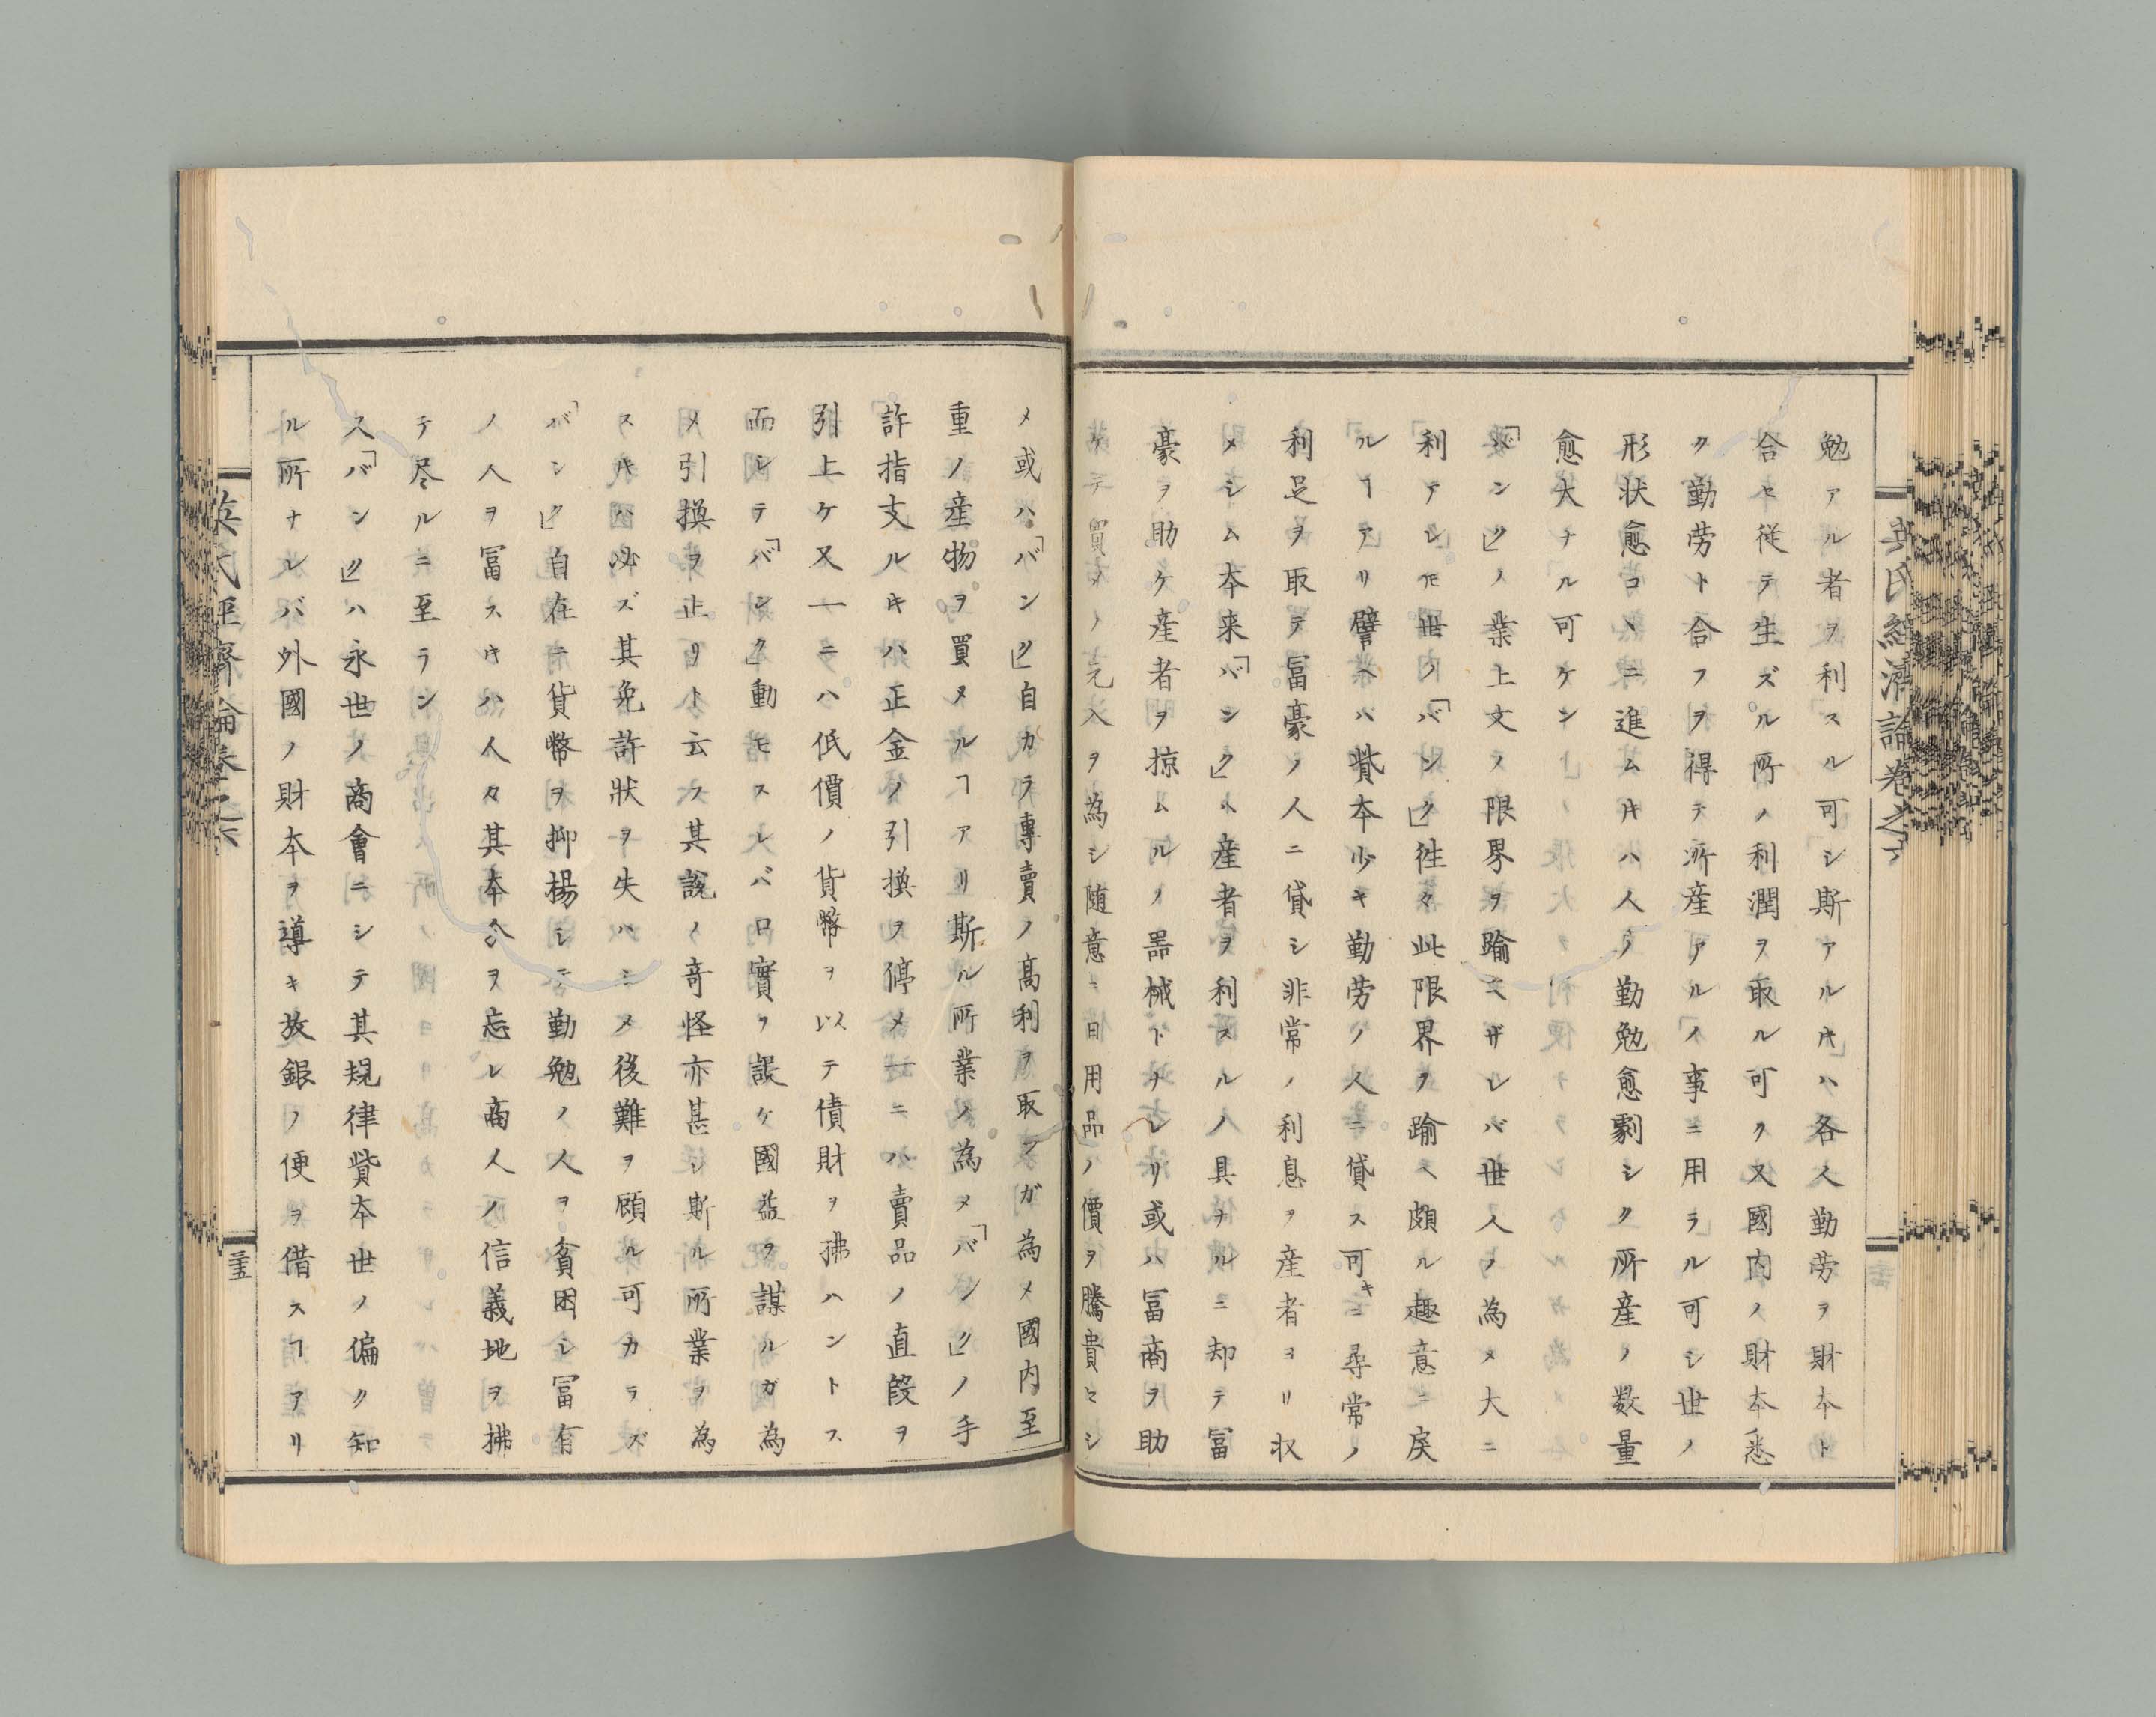 英氏經濟論卷之六
勉アル者ヲ利スル可シ斯アル𪜈ハ各人勤労ヲ財本ト
合セ従テ生ズル所ノ利潤ヲ取ル可ク又國内ノ財本悉
ク勤労ト合フヲ得テ所産アルノ事ニ用ラル可シ世ノ
形状愈コヽニ進ム片ハ人ノ勤勉愈劇シク所産ノ数量
愈大ナル可ケン
「バンク」ノ業上文ノ限界ヲ踰ヘザレバ世人ノ為メ大ニ
利アレ𪜈世ノ「バンク」徃々此限界ヲ踰ヘ頗ル趣意ニ戻
ルヿアリ譬ヘハ貲本少キ勤労ノ人ニ貸ス可キニ尋常ノ
利足ヲ取テ冨豪ノ人ニ貸シ非常ノ利息ヲ産者ヨリ収
メシム本来「バンク」ハ産者ヲ利スルノ具ナルニ却テ冨
豪ヲ助ケ産者ヲ掠ムルノ噐械トナレリ或ハ冨商ヲ助
ケテ買〆ノ元入ヲ為シ随意ニ日用品ノ價ヲ騰貴セシ
メ或ハ「バンク」自カラ專賣ノ髙利ヲ取ンガ為メ國内至
重ノ産物ヲ買メルヿアリ斯ル所業ノ為メ「バンク」ノ手
許指支ル片ハ正金ノ引換ヲ停メ一ニハ賣品ノ直段ヲ
引上ケ又一ニハ低價ノ貨幣ヲ以テ債財ヲ拂ハントス
而シテ「バンク」動モスレバ口實ヲ設ケ國益ヲ謀ルガ為
メ引換ヲ止リト云フ其說ノ奇怪亦甚シ斯ル所業ヲ為
ス片ハ必ズ其免許狀ヲ失ハシメ後難ヲ顧ル可カラズ
「バンク」自在ニ貨幣ヲ抑揚シテ勤勉ノ人ヲ貧困シ冨有
ノ人ヲ冨ス片ハ人々其本分ヲ忘レ商人ノ信義地ヲ拂
テ尽ルニ至ラン
「バンク」ハ永世ノ商會ニシテ其規律貲本世ノ偏ク知
ル所ナレバ外國ノ財本ヲ導キ放銀ノ便ヲ借スヿアリ
英氏經濟論卷之六
二十五